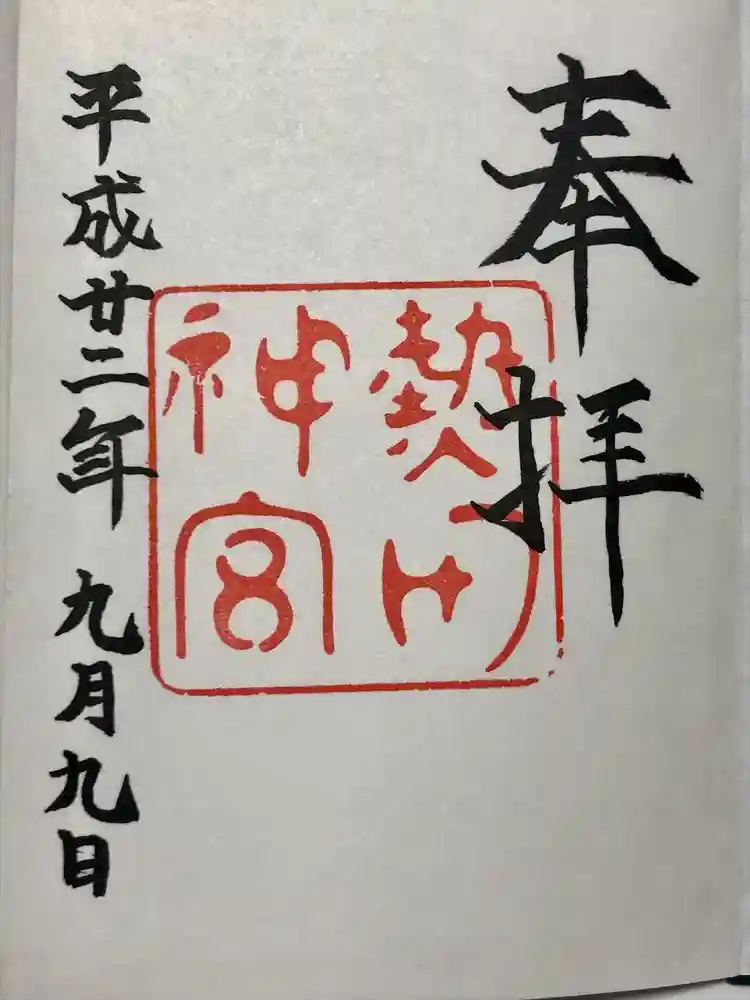 奉拝
熱田
神宮
平成廿二年 九月九日